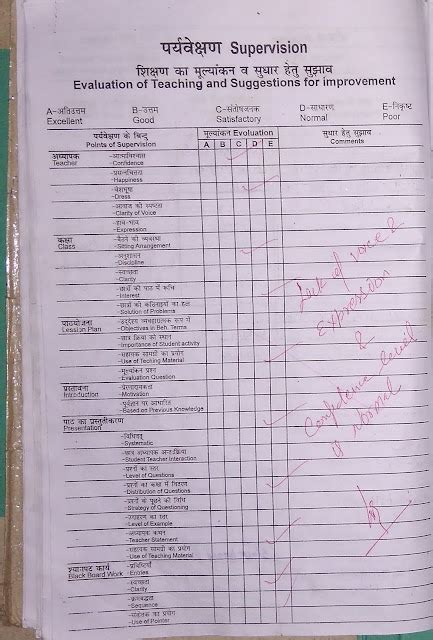 पर्यवेक्षण Supervision
शिक्षण का मूल्यांकन व सुधार हेतु सुझाव
Evaluation of Teaching and Suggestions for improvement
A-अतिउत्तम B-उत्तम C-संतोषजनक D-साधारण E-निकृष्ट
Excellent Good Satisfactory Normal Poor
पर्यवेक्षण के बिन्दु मूल्यांकन Evoluation सुधार हेतु सुझाव
Points of Supervision A B C D E Comments
अध्यापक -आत्मविश्वास
Teacher -Confidence
-प्रसन्नचित्तता
-Happiness
-वेशभूषा
-Dress
-आवाज की स्पष्टता
-Clarity of Voice
-हाव-भाव
-Expression
कक्षा -बैठने की व्यवस्था
Class -Sitting Arrangement
-अनुशासन
-Discipline
-स्वच्छता
-Clarity
-छात्रों की पाठ में रूचि
-Interest
-छात्रों की कठिनाइयों का हल
-Solution of Problems
पाठयोजना -उद्देश्य व्यवहारात्मक रूप में
Lession Plan -Objectives in Beh. Terms
-छात्र क्रिया को स्थान
-Importance of Student activity
-सहायक सामग्री का प्रयोग
-Use of Teching Material
-मूल्यांकन प्रश्न
-Evaluation Question
प्रस्तावना -प्रेरणात्मकता
Introduction -Motivation
-पूर्वज्ञान पर आधारित
-Based on Previous Knowledge
पाठ का प्रस्तुतीकरण
Presentation
-विधिवत्
-Systematic
-छात्र अध्यापक अन्तःक्रिया
-Student Teacher Interaction
-प्रश्नों का स्तर
-Level of Questions
-प्रश्नों का कक्षा में वितरण
-Distribution of Questions
-प्रश्नों के पूछने की विधि
-Strategy of Questioning
-उदाहरण का स्तर
-Level of Example
-अध्यापक कथन
-Teacher Statement
-सहायक सामग्री का प्रयोग
-Use of Teaching Material
श्यामपट कार्य -प्रविष्टियाँ
Black Board Work -Entries
-स्वच्छता
-Clarity
-क्रमबद्धता
-Sequence
-संकेतक का प्रयोग
-Use of Pointer
Lack of voice &
Expression
&
Confidence level
is normal